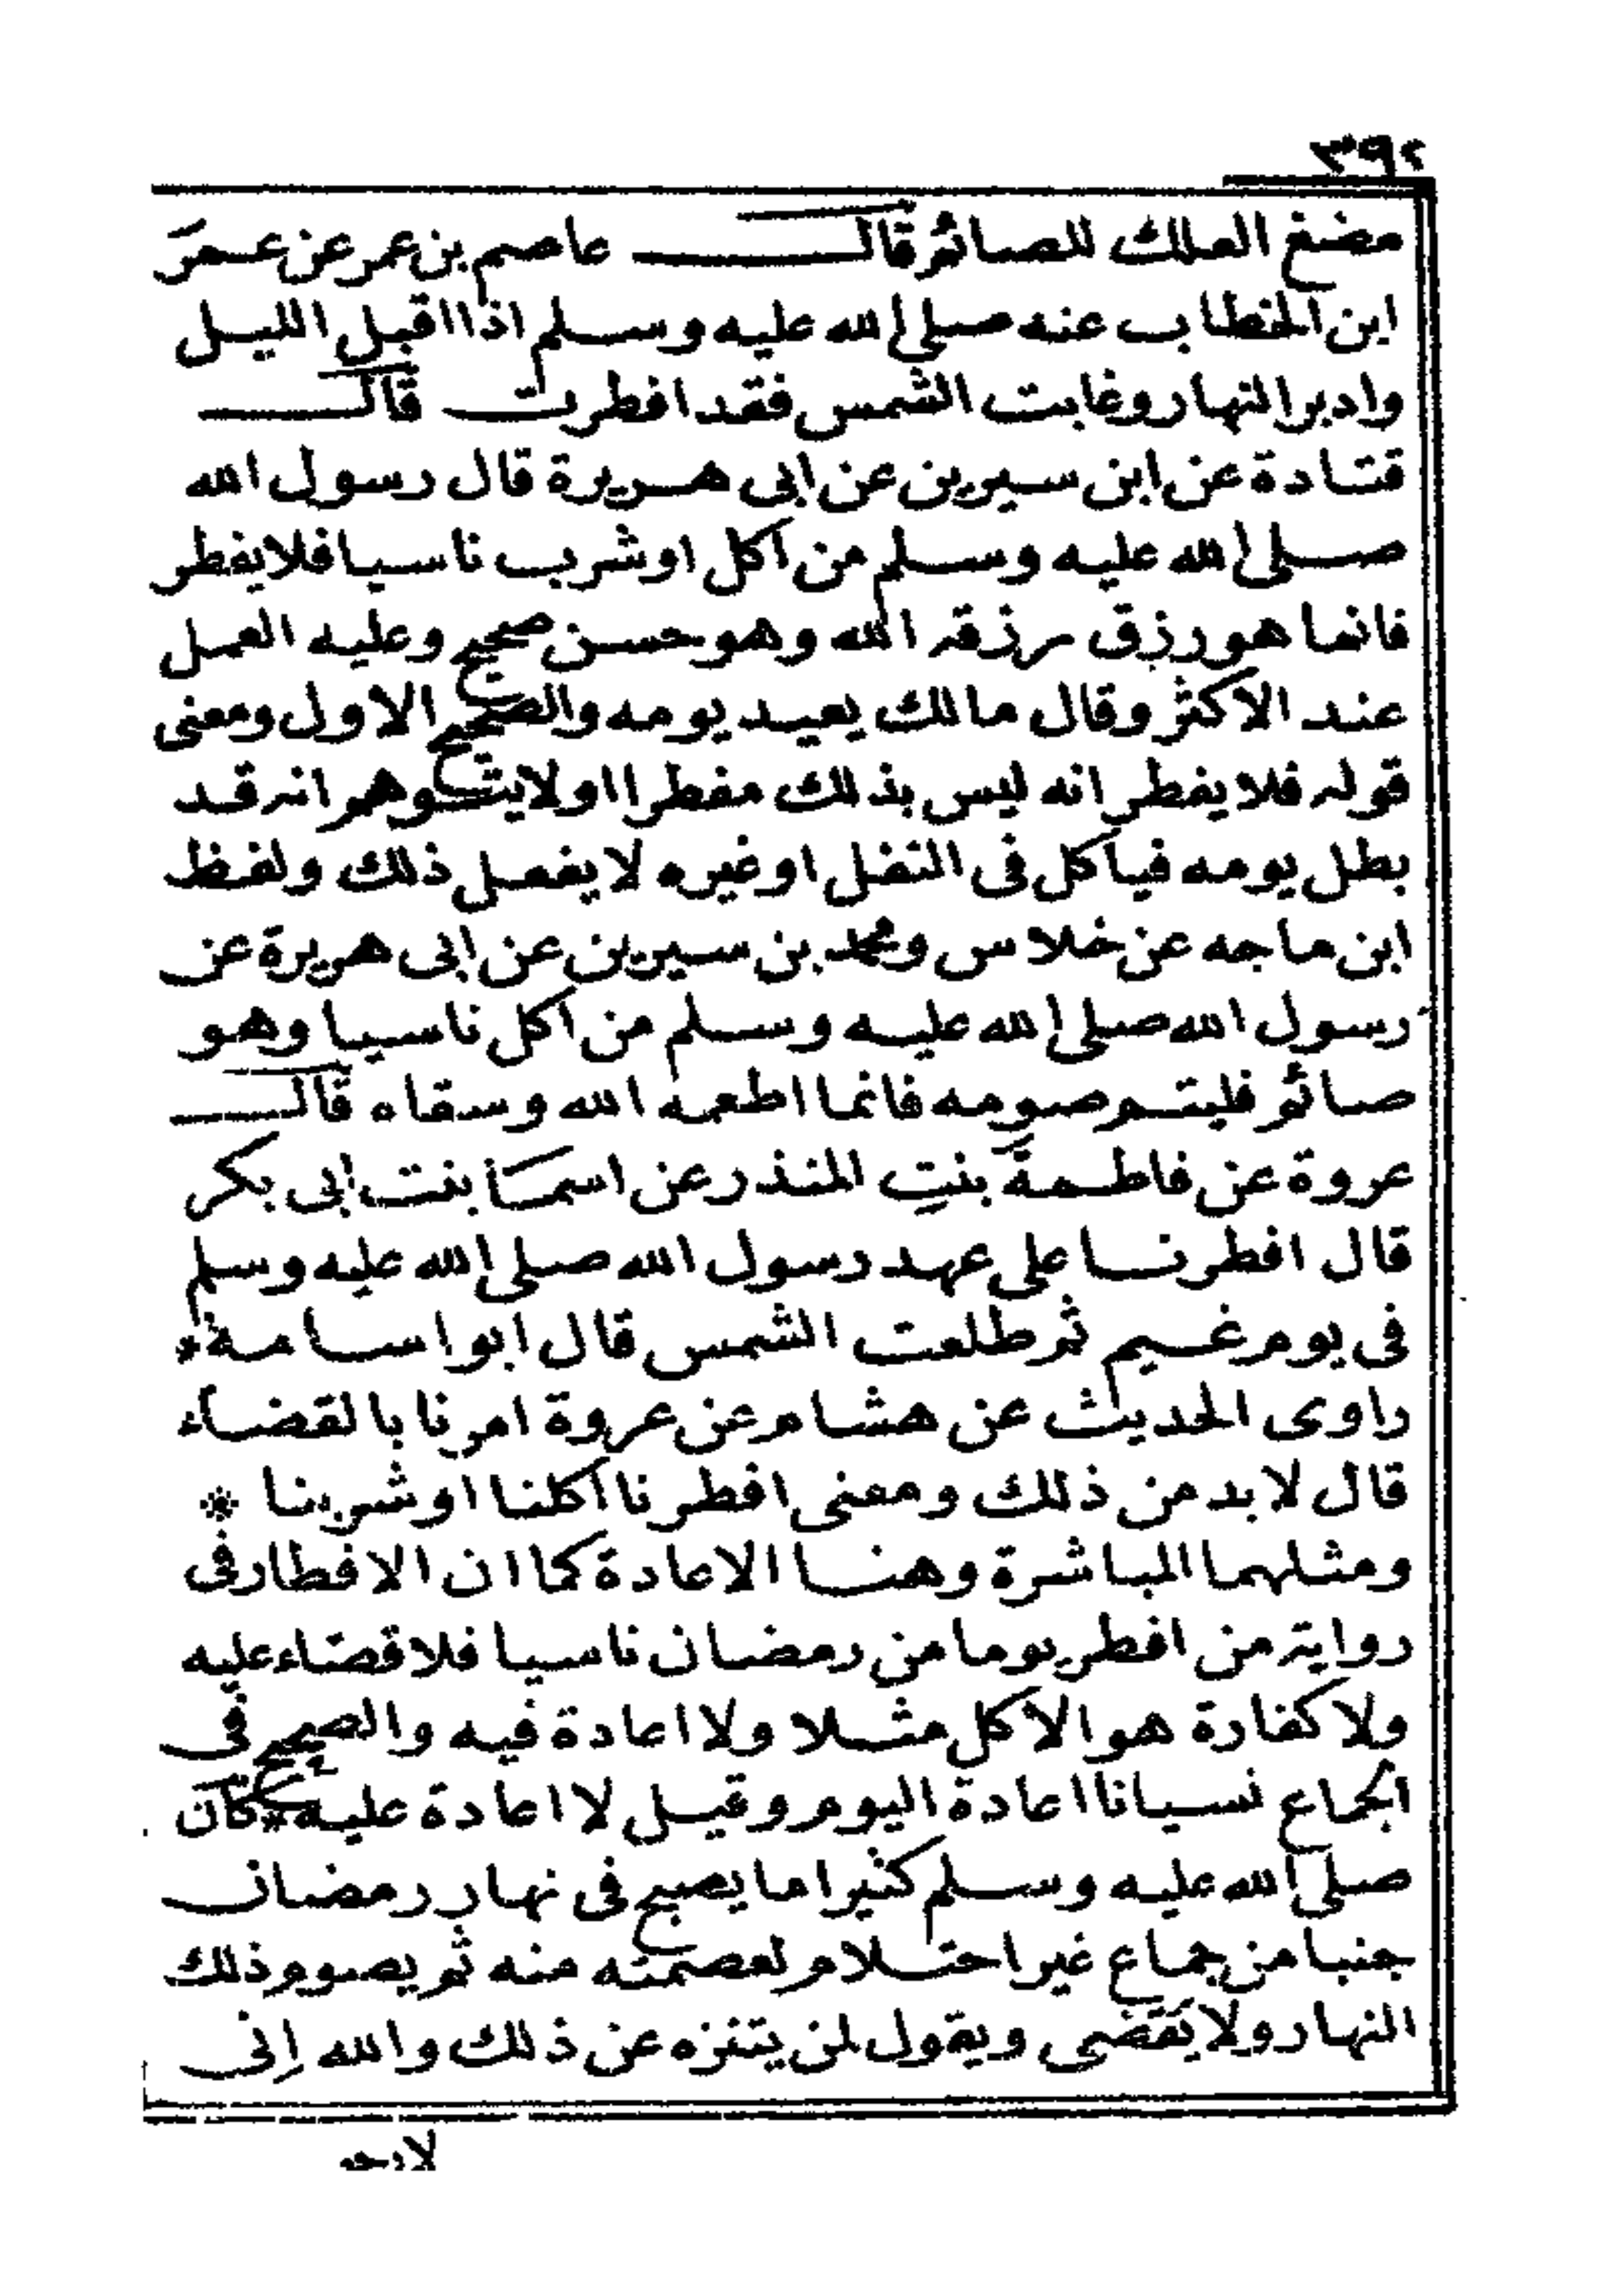 ٣٩٢
مضغ العلك للصائم قال عاصم بن عمر عن عمر
ابن الخطاب عنه صلى الله عليه وسلم اذا اقبل الليل
وادبر النهار وغابت الشمس فقد افطرت قال
قتادة عن ابن سيرين عن ابى هريرة قال رسول الله
صلى الله عليه وسلم من اكل او شرب ناسيا فلا يفطر
فانما هو رزق رزقه الله وهو حسن صحيح وعليه العمل
عند الاكثر وقال مالك يعيد يومه والصحيح الاول ومعنى
قوله فلا يفطر انه ليس بذلك مفطرا اولا يتوهم انه قد
بطل يومه فياكل فى التفل او غيره لا يفعل ذلك ولفظ
ابن ماجه عن خلاس ومحمد بن سيرين عن ابى هريرة عن
رسول الله صلى الله عليه وسلم من اكل ناسيا وهو
صائم فليتم صومه فانما اطعمه الله وسقاه قال
عروة عن فاطمة بنتِ المنذر عن اسمآ بنت ابى بكر
قال افطرنا على عهد رسول الله صلى الله عليه وسلم
فى يوم غيم ثم طلعت الشمس قال ابو اسامة *
راوى الحديث عن هشام عن عروة امرنا بالقضاء
قال لا بد من ذلك ومعنى افطرنا اكلنا او شربنا *
ومثلهما المباشرة وهنا الاعادة كما ان الافطار فى
رواية من افطر يوما من رمضان ناسيا فلا قضاء عليه
ولا كفارة هو الاكل مثلا ولا اعادة فيه والصحيح فى
الجماع نسيانا اعادة اليوم وقيل لا اعادة عليه * كان
صلى الله عليه وسلم كثيرا ما يصبح فى نهار رمضان
جنبا من جماع غير احتلام لعصمته منه ثم يصوم ذلك
النهار ولا يقضى ويقول لمن يتنزه عن ذلك والله اِنى
لارجو